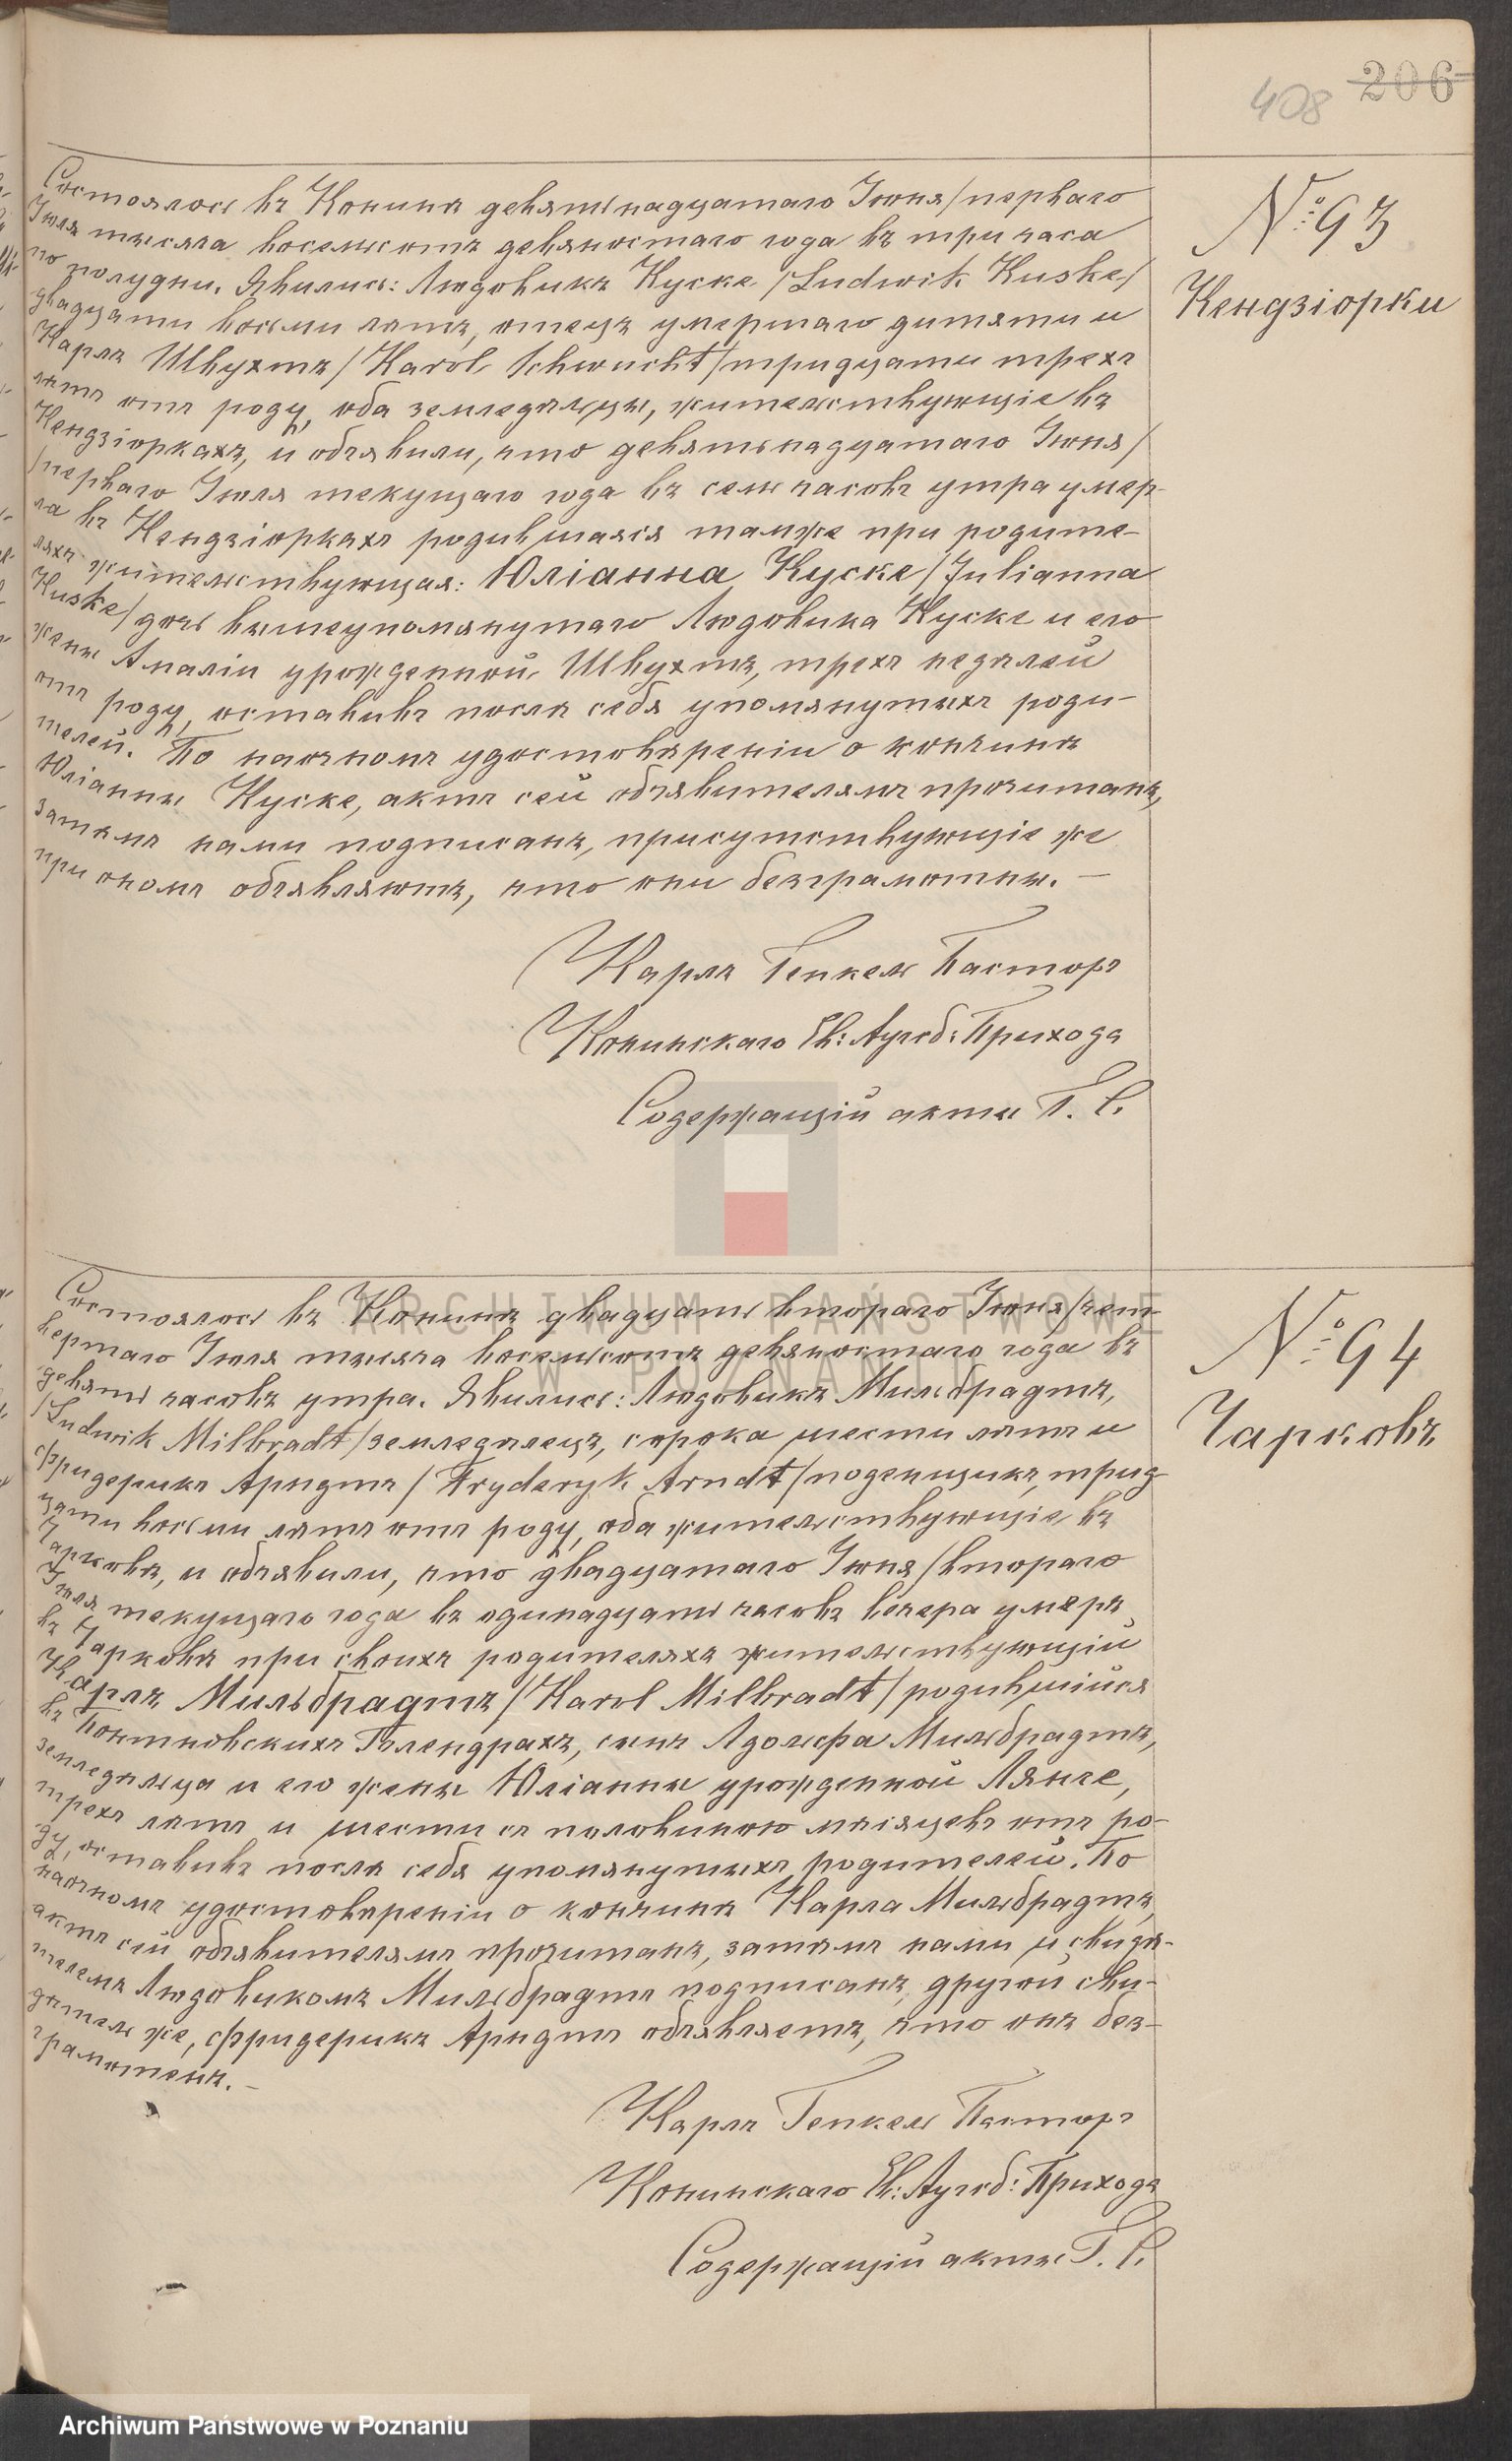 408 206
№ 93
Кендзіорки
Состоялось въ Конинѣ девятьнадцатаго Іюня/перваго
Іюля тысяча восемьсотъ девяностаго года въ три часа
по полудни. Явились: Людовикъ Куске /Ludwik Kuske/
двадцати восьми лѣтъ, отецъ умершаго дитяти и
Карлъ Швухтъ /Karol Schwucht/ тридцати трехъ
лѣтъ отъ роду, оба земледѣльцы, жительствующіе въ
Кендзіоркахъ, и объявили, что девятьнадцатаго Іюня/
/перваго Іюля текущаго года въ семь часовъ утра умер-
ла въ Кендзіоркахъ родившаяся тамже при родите-
ляхъ жительствующая: Юліанна Куске /Julianna
Kuske/ дочь вышеупомянутаго Людовика Куске и его
жены Амаліи урожденной Швухтъ, трехъ недѣлей
отъ роду, оставивъ послѣ себя упомянутыхъ роди-
телей. По наочномъ удостовѣреніи о кончинѣ
Юліанны Куске, актъ сей объявителямъ прочитанъ,
затѣмъ нами подписанъ, присутствующіе же
при ономъ объявляютъ, что они безграмотны. —
Карлъ Генкель Пасторъ
Конинскаго Ев: Аугсб: Прихода
Содержащій акты Г. С.
№ 94
Чарковъ
Состоялось въ Конинѣ двадцать втораго Іюня/чет-
вертаго Іюля тысяча восемьсотъ девяностаго года въ
девять часовъ утра. Явились: Людовикъ Мильбрадтъ,
/Ludwik Milbradt/ земледѣлецъ, сорока шести лѣтъ и
Фридерикъ Арндтъ /Fryderyk Arndt/ поденщикъ, трид-
цати восьми лѣтъ отъ роду, оба жительствующіе въ
Чарковѣ, и объявили, что двадцатаго Іюня/втораго
Іюля текущаго года въ одинадцать часовъ вечера умеръ
въ Чарковѣ при своихъ родителяхъ жительствующій
Карлъ Мильбрадтъ /Karol Milbradt/ родившійся
въ Понтновскихъ Голендрахъ, сынъ Адольфа Мильбрадтъ,
земледѣльца и его жены Юліанны урожденной Лянге,
трехъ лѣтъ и шести съ половиною мѣсяцевъ отъ ро-
ду, оставивъ послѣ себя упомянутыхъ родителей. По
наочномъ удостовѣреніи о кончинѣ Карла Мильбрадтъ,
актъ сей объявителямъ прочитанъ, затѣмъ нами и свидѣ-
телемъ Людовикомъ Мильбрадтъ подписанъ, другой сви-
дѣтель же, Фридерикъ Арндтъ объявляетъ, что онъ без-
грамотенъ. —
Карлъ Генкель Пасторъ
Конинскаго Ев: Аугсб: Прихода
Содержащій акты Г. С.
ARCHIWUM PAŃSTWOWE
W POZNANIU
Archiwum Państwowe w Poznaniu